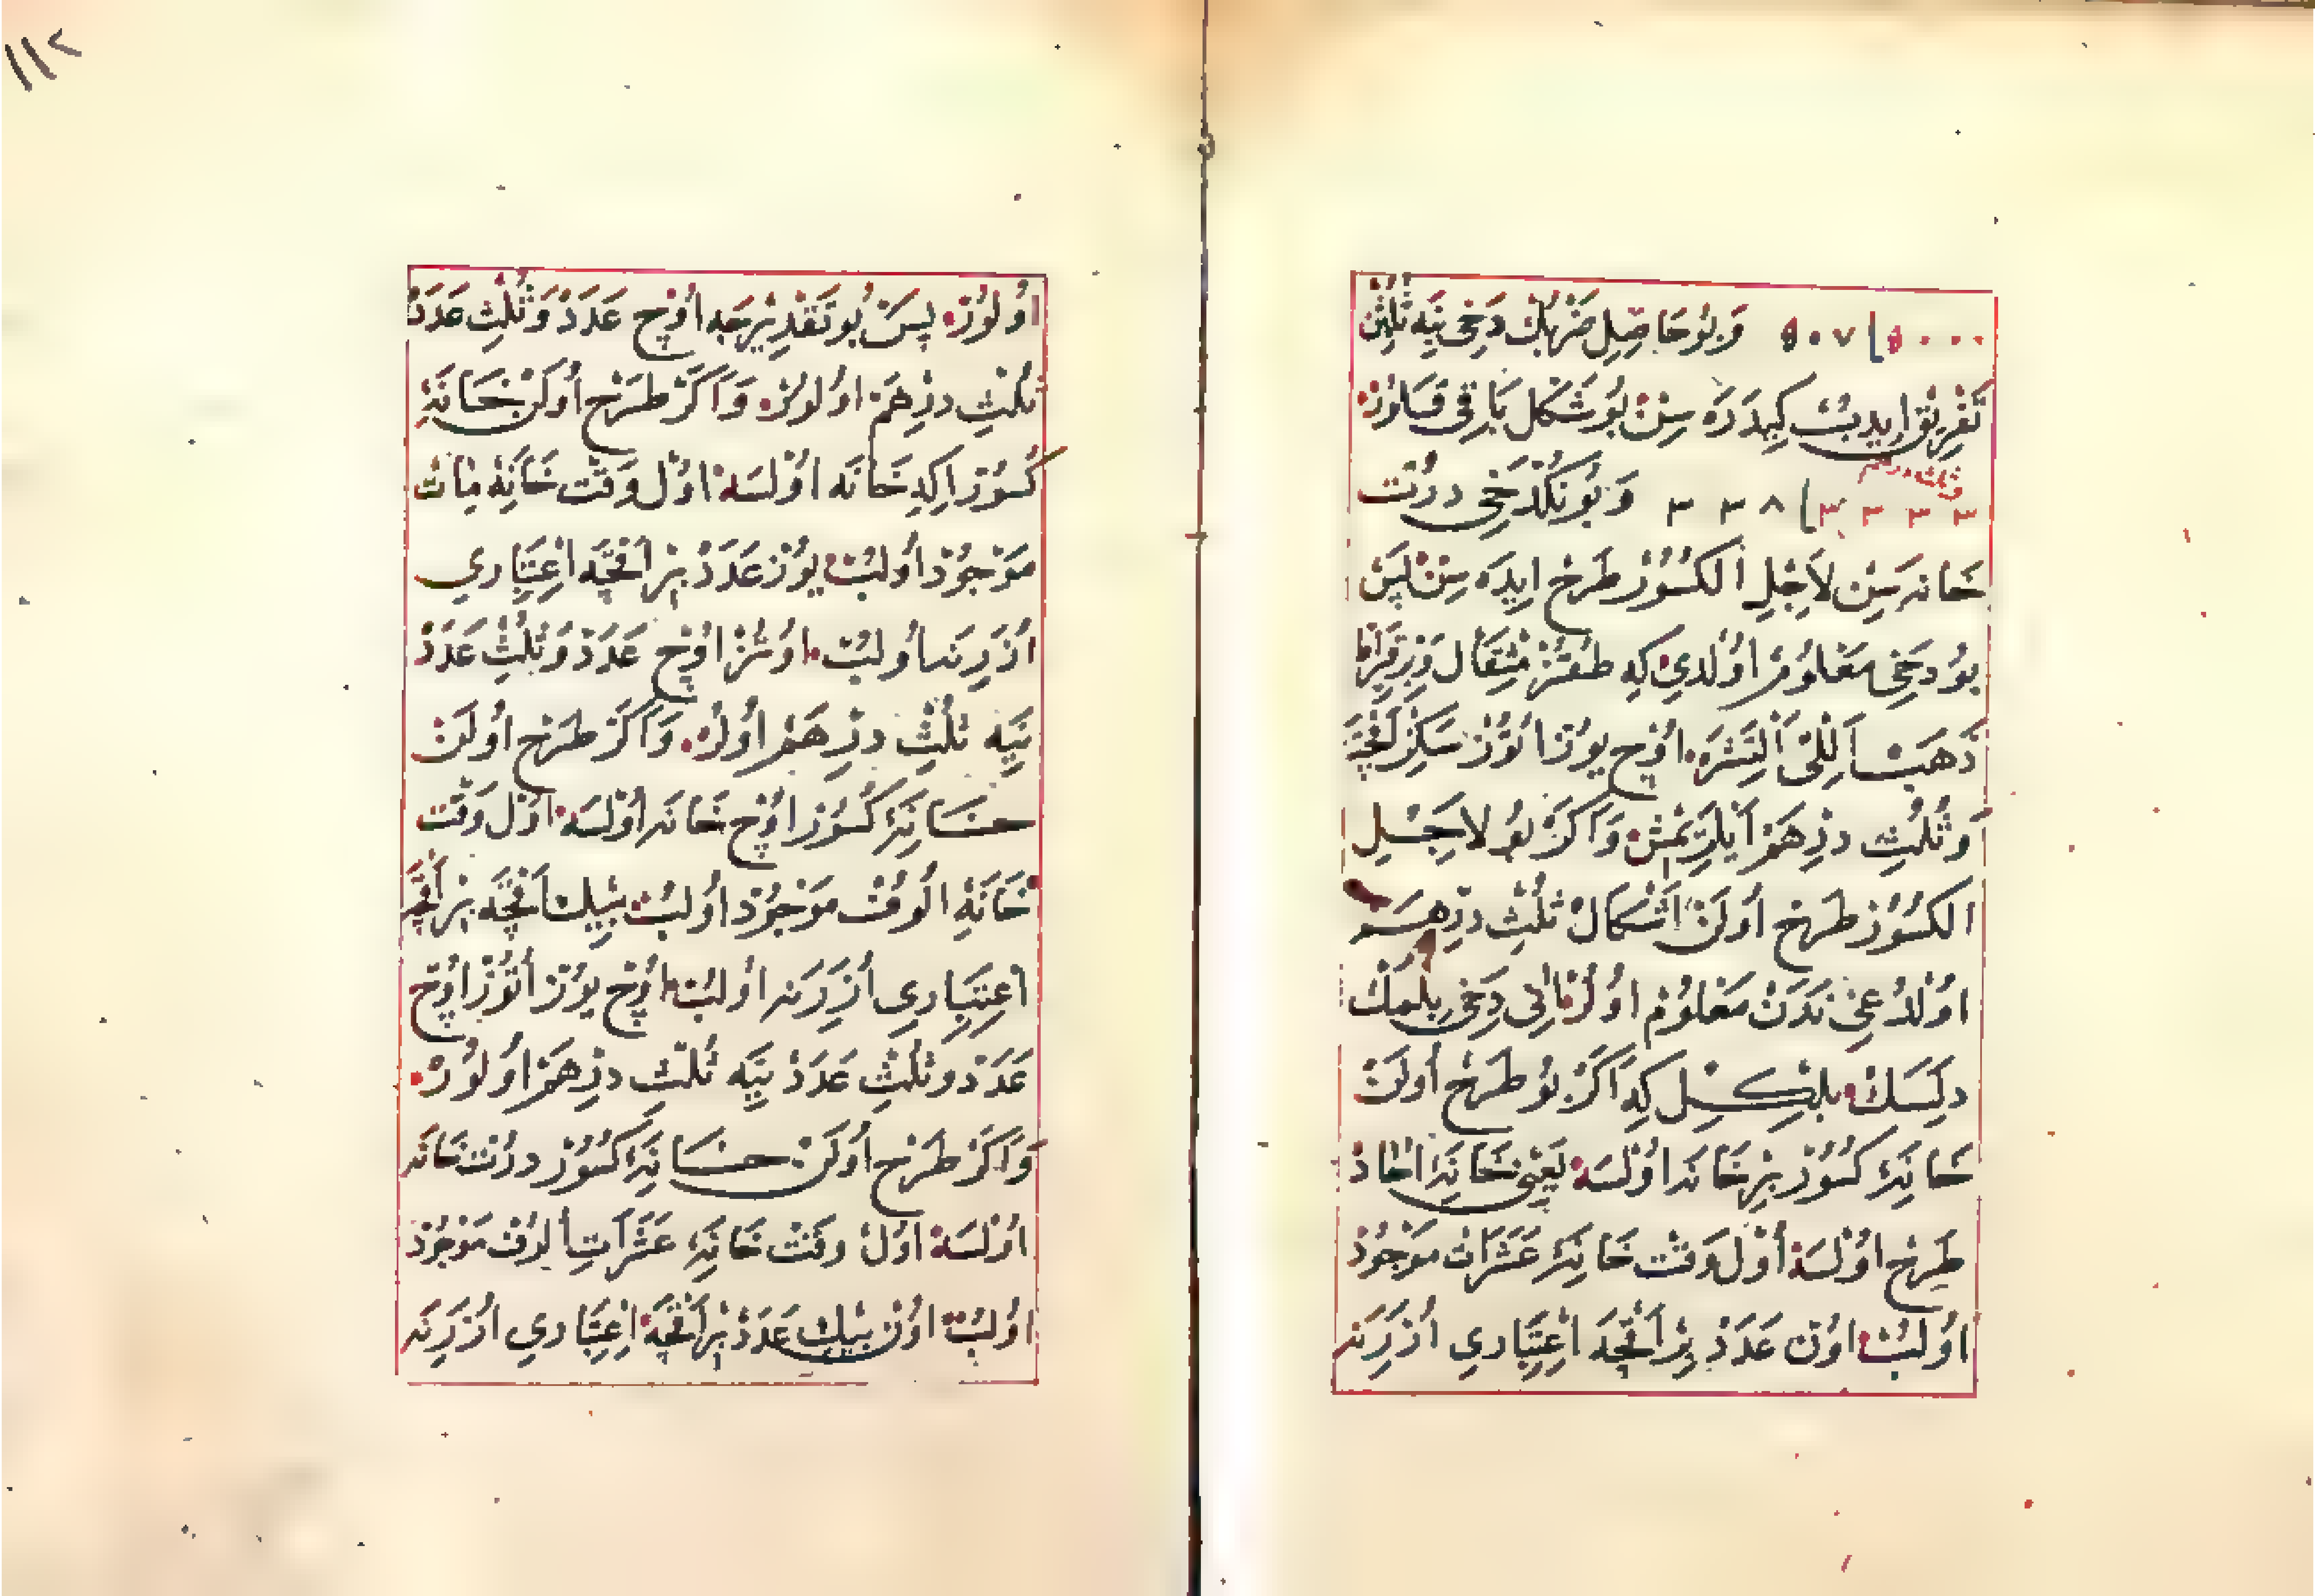 ٥٠٧ ٥٠٠٠ وَبُو حَاصِلِ ضَرْبُكْ دَخِى يَنَه ثُلْثِنْ
تَفْرِيْق اِيدِبْ كِيدَرَه سِنْ بُو شَكِل بَاقِى قَالُورْ
وثلث درهم
٣٣٨ ٣٣٣٣ وَبُونُكْ دَخِى دُرْت
خَانَه سِيْن لاَجِلِ الكُسُوْرْ طَرْح اِيدَه سِنْ پَسْ
بُو دَخِى مَعْلُومْ اوُلْدِى كِه طُقُزْ مِثْقَال وَبِرْ قِرَاط
ذَهَبْ اَللِّى اَلْتِشَرَه اوُچ يُوزْ اوُتُوزْ سَكِزْ اَقْچَه
وَثُلُثِ دِرْهَمْ اَيْلَرِمِشْ وَاَكَرْ بُو لاَجِلِ
الكُسُوْرْ طَرْح اوُلَنْ اَشْكَالْ ثُلُثِ دِرْهَم
اوُلْدُغِى نَدَنْ مَعْلُومْ اوُلُرْ اَنِى دَخِى بِلْمَكْ
دِلَرْسَكْ بِلْكِل كِه اَكَرْ بُو طَرْح اوُلَنْ
خَانَۀ كُسُوْرْ بِرْ خَانَه اوُلْسَه يَعْنِى خَانَۀ احَادْ
طَرْح اوُلْسَه اوُلْ وَقْت خَانَۀ عَشَرَاتْ مَوْجُودْ
اوُلُبْ اوُنْ عَدَدْ بِرْ اَقْچَه اِعْتِبَارِى اُزَرِنَه
١١٢
اوُلُورْ پَسْ بُو تَقْدِيْرْجَه اوُچ عَدَدْ وَثُلُثِ عَدَدْ
ثُلُثِ دِرْهَمْ اوُلُورْ وَاَكَرْ طَرْح اوُلَنْ خَانَۀ
كُسُوْرْ اِكِى خَانَه اوُلْسَه اوُلْ وَقْت خَانَۀ مِاَتْ
مَوْجُودْ اوُلُبْ يُوزْ عَدَدْ بِرْ اَقْچَه اِعْتِبَارِى
اُزَرِنَه اوُلُبْ اوُتُزْ اوُچ عَدَدْ وَثُلُثِ عَدَدْ
يَنَه ثُلُثِ دِرْهَمْ اوُلُرْ وَاَكَرْ طَرْح اوُلَنْ
خَانَۀ كُسُوْرْ اوُچ خَانَه اوُلْسَه اوُلْ وَقْت
خَانَۀ الُوفْ مَوْجُودْ اوُلُبْ بِيْك اَقْچَه بِرْ اَقْچَه
اِعْتِبَارِى اُزَرِنَه اوُلُبْ اوُچ يُوزْ اوُتُوزْ اوُچ
عَدَدْ وثُلُثِ عَدَدْ يَنَه ثُلُثِ دِرْهَمْ اوُلُورْ
وَاَكَرْ طَرْح اوُلَنْ خَانَۀ كُسُوْرْ دُرْت خَانَه
اوُلْسَه اوُلْ وَقْت خَانَۀ عَشَرَاتِ الُوفْ مَوْجُودْ
اوُلُبْ اوُنْ بِيْك عَدَدْ بِرْ اَقْچَه اِعْتِبَارِى اُزَرِنَه